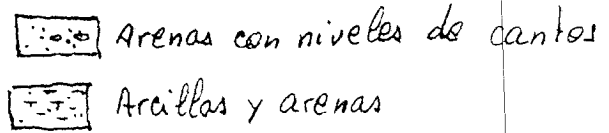 Arenas con niveles de cantos
Arcillas y arenas